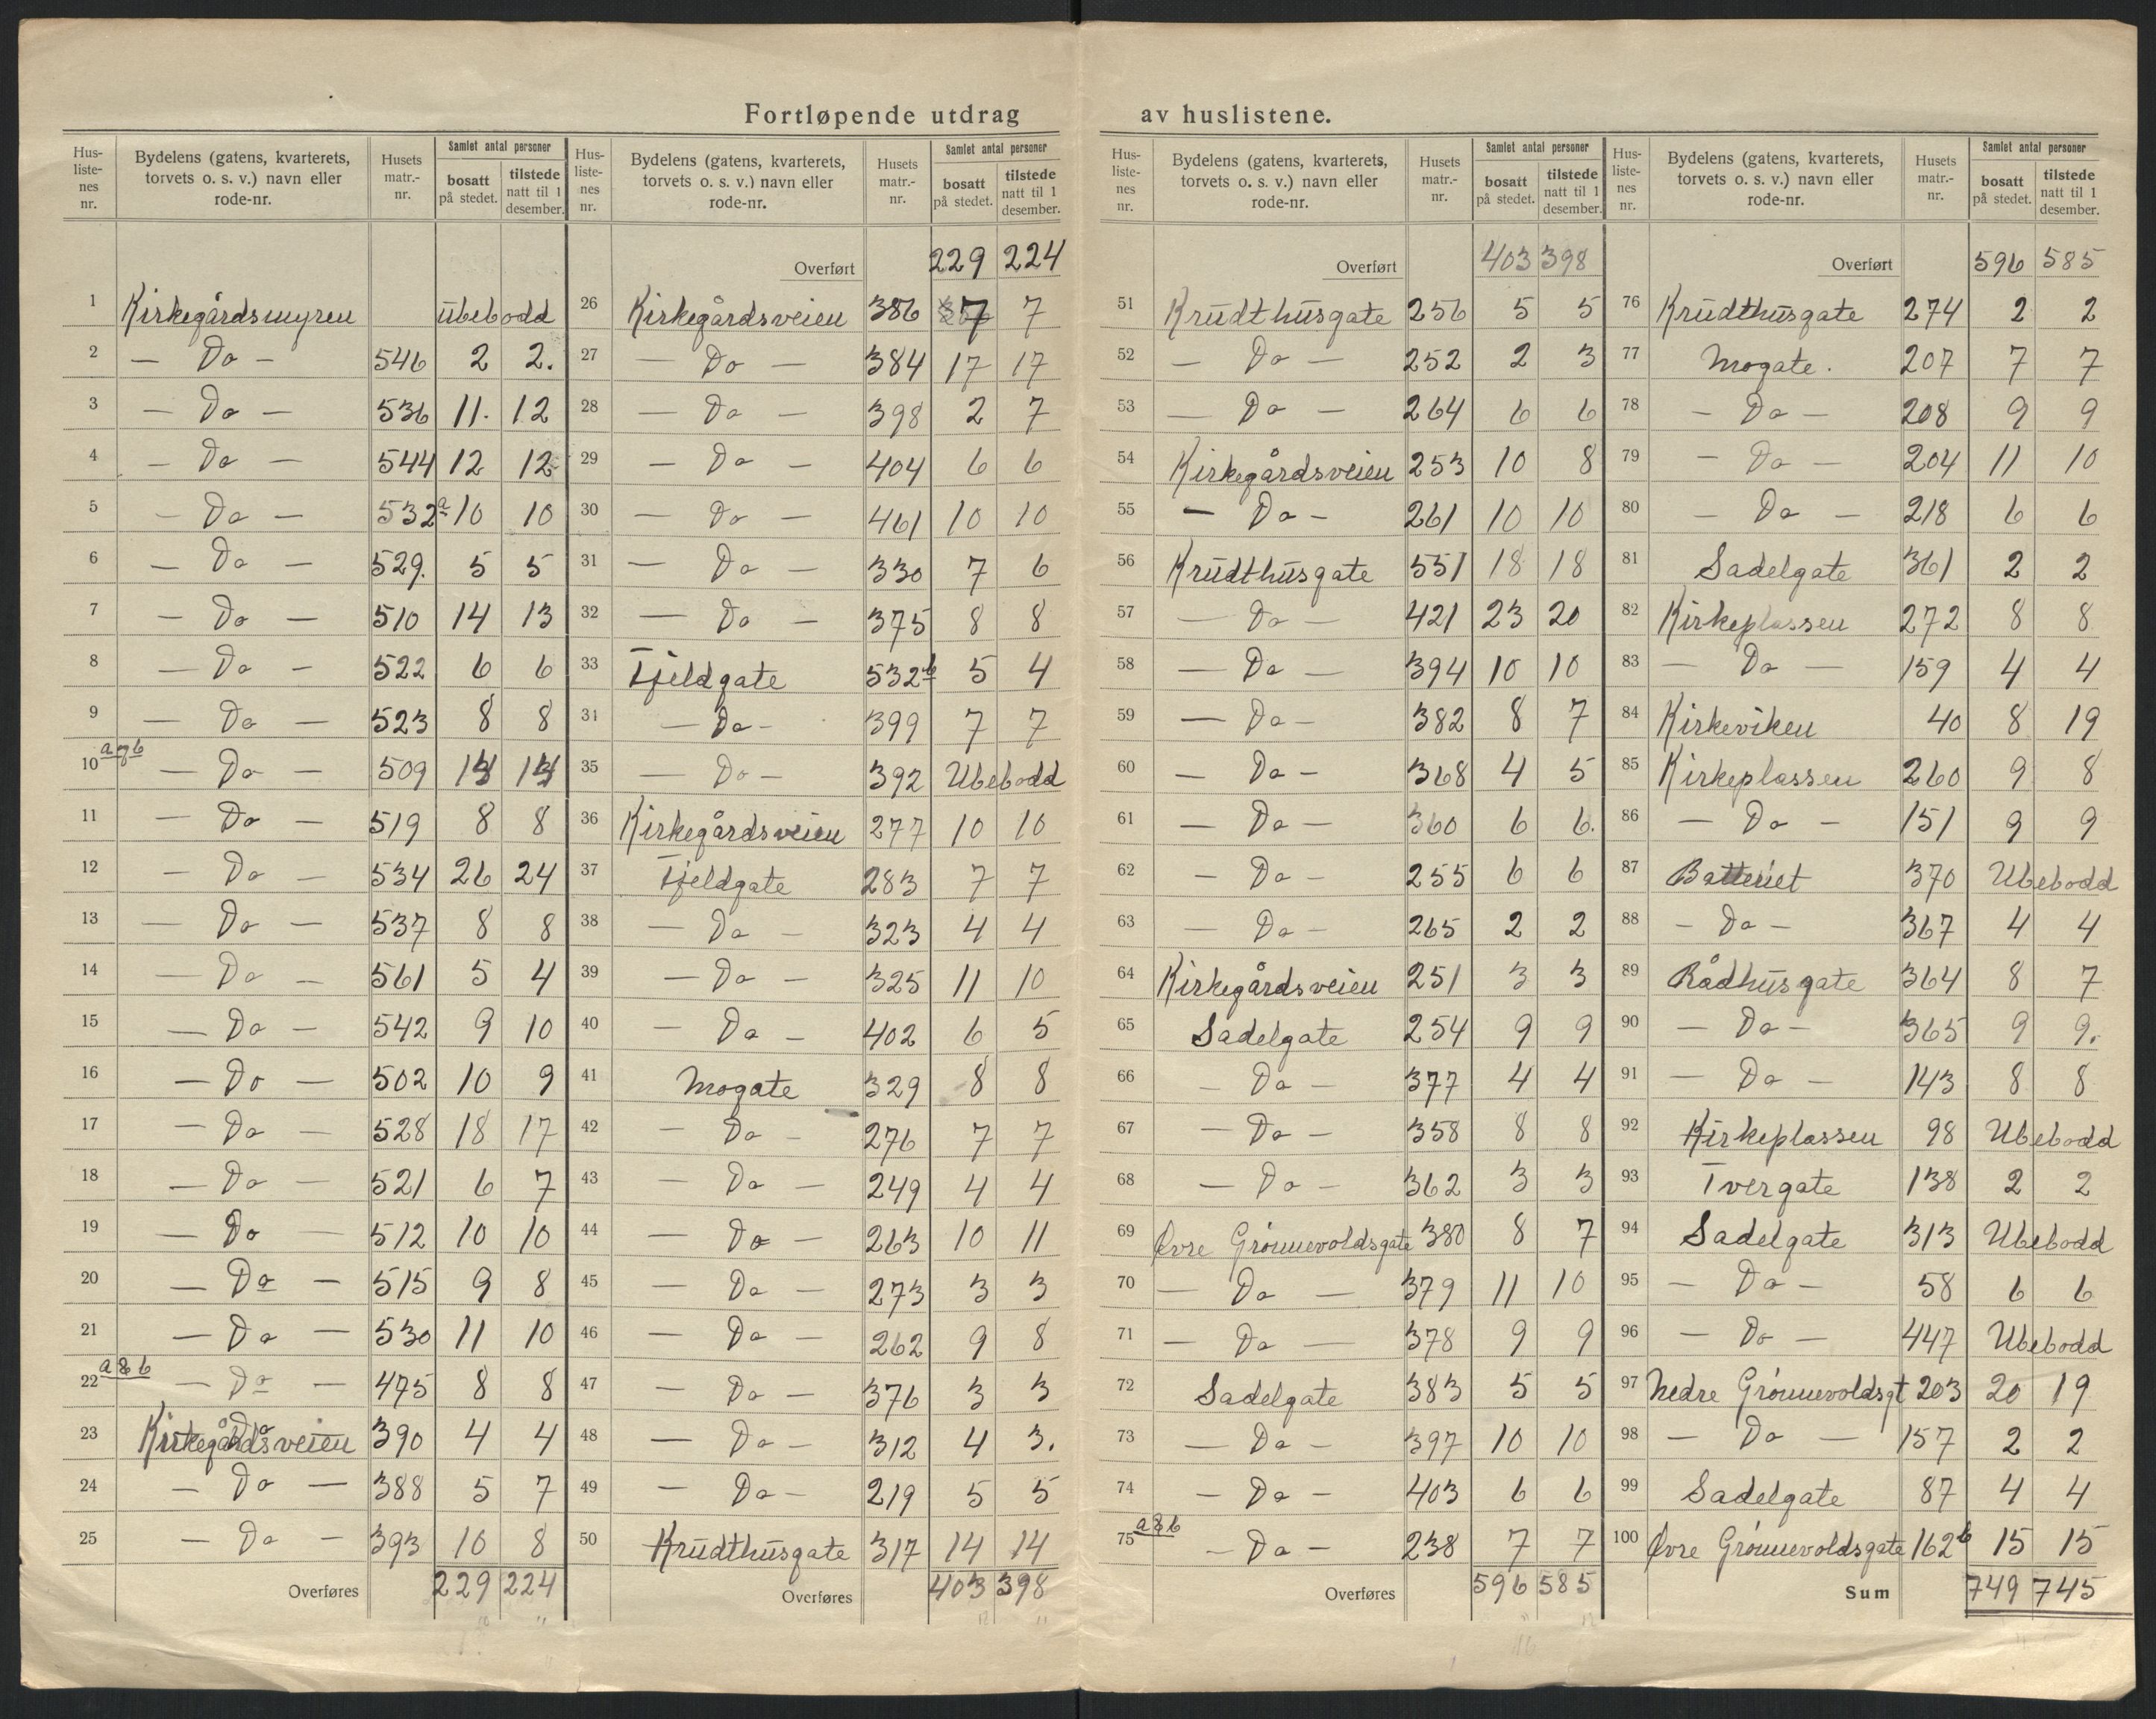 Fortløpende utdrag av huslistene.
Hus-listenes nr. | Bydelens (gatens, kvarterets, torvets o. s. v.) navn eller rode-nr. | Husets matr.-nr. | Samlet antal personer | bosatt på stedet. | tilstede natt til 1 desember.
1 Kirkegårdsmyren ubebodd
2 — Do — 546 2 2.
3 — Do — 536 11. 12
4 — Do — 544 12 12
5 — Do — 532a 10 10
6 — Do — 529. 5 5
7 — Do — 510 14 13
8 — Do — 522 6 6
9 — Do — 523 8 8
10 a og b — Do — 509
11 — Do — 519 8 8
12 — Do — 534 26 24
13 — Do — 537 8 8
14 — Do — 561 5 4
15 — Do — 542 9 10
16 — Do — 502 10 9
17 — Do — 528 18 17
18 — Do — 521 6 7
19 — Do — 512 10 10
20 — Do — 515 9 8
21 — Do — 530 11 10
22 a & b — Do — 475 8 8
23 Kirkegårdsveien 390 4 4
24 — Do — 388 5 7
25 — Do — 393 10 8
Overføres 229 224
Hus-listenes nr. | Bydelens (gatens, kvarterets, torvets o. s. v.) navn eller rode-nr. | Husets matr.-nr. | Samlet antal personer | bosatt på stedet. | tilstede natt til 1 desember.
Overført 229 224
26 Kirkegårdsveien 386 7 7
27 — Do — 384 17 17
28 — Do — 398 2 7
29 — Do — 404 6 6
30 — Do — 461 10 10
31 — Do — 330 7 6
32 — Do — 375 8 8
33 Fjeldgate 532b 5 4
31 — Do — 399 7 7
35 — Do — 392 Ubebodd
36 Kirkegårdsveien 277 10 10
37 Fjeldgate 283 7 7
38 — Do — 323 4 4
39 — Do — 325 11 10
40 — Do — 402 6 5
41 Mogate 329 8 8
42 — Do — 276 7 7
43 — Do — 249 4 4
44 — Do — 263 10 11
45 — Do — 273 3 3
46 — Do — 262 9 8
47 — Do — 376 3 3
48 — Do — 312 4 3.
49 — Do — 219 5 5
50 Krudthusgate 317 14 14
Overføres 403 398
Hus-listenes nr. | Bydelens (gatens, kvarterets, torvets o. s. v.) navn eller rode-nr. | Husets matr.-nr. | Samlet antal personer | bosatt på stedet. | tilstede natt til 1 desember.
Overført 403 398
51 Krudthusgate 256 5 5
52 — Do — 252 2 3
53 — Do — 264 6 6
54 Kirkegårdsveien 253 10 8
55 — Do — 261 10 10
56 Krudthusgate 551 18 18
57 — Do — 421 23 20
58 — Do — 394 10 10
59 — Do — 382 8 7
60 — Do — 368 4 5
61 — Do — 360 6 6.
62 — Do — 255 6 6
63 — Do — 265 2 2
64 Kirkegårdsveien 251 3 3
65 Sadelgate 254 9 9
66 — Do — 377 4 4
67 — Do — 358 8 8
68 — Do — 362 3 3
69 Øvre Grønnevoldsgate 380 8 7
70 — Do — 379 11 10
71 — Do — 378 9 9
72 Sadelgate 383 5 5
73 — Do — 397 10 10
74 — Do — 403 6 6
75 a & b — Do — 238 7 7
Overføres 596 585
Hus-listenes nr. | Bydelens (gatens, kvarterets, torvets o. s. v.) navn eller rode-nr. | Husets matr.-nr. | Samlet antal personer | bosatt på stedet. | tilstede natt til 1 desember.
Overført 596 585
76 Krudthusgate 274 2 2
77 Mogate. 207 7 7
78 — Do — 208 9 9
79 — Do — 204 11 10
80 — Do — 218 6 6
81 Sadelgate 361 2 2
82 Kirkeplassen 272 8 8
83 — Do — 159 4 4
84 Kirkeviken 40 8 19
85 Kirkeplassen 260 9 8
86 — Do — 151 9 9
87 Batteriet 370 Ubebodd
88 — Do — 367 4 4
89 Rådhusgate 364 8 7
90 — Do — 365 9 9.
91 — Do — 143 8 8
92 Kirkeplassen 98 Ubebodd
93 Tvergate 138 2 2
94 Sadelgate 313 Ubebodd
95 — Do — 58 6 6
96 — Do — 447 Ubebodd
97 Nedre Grønnevoldsgt 203 20 19
98 — Do — 157 2 2
99 Sadelgate 87 4 4
100 Øvre Grønnevoldsgate 162b 15 15
Sum 749 745